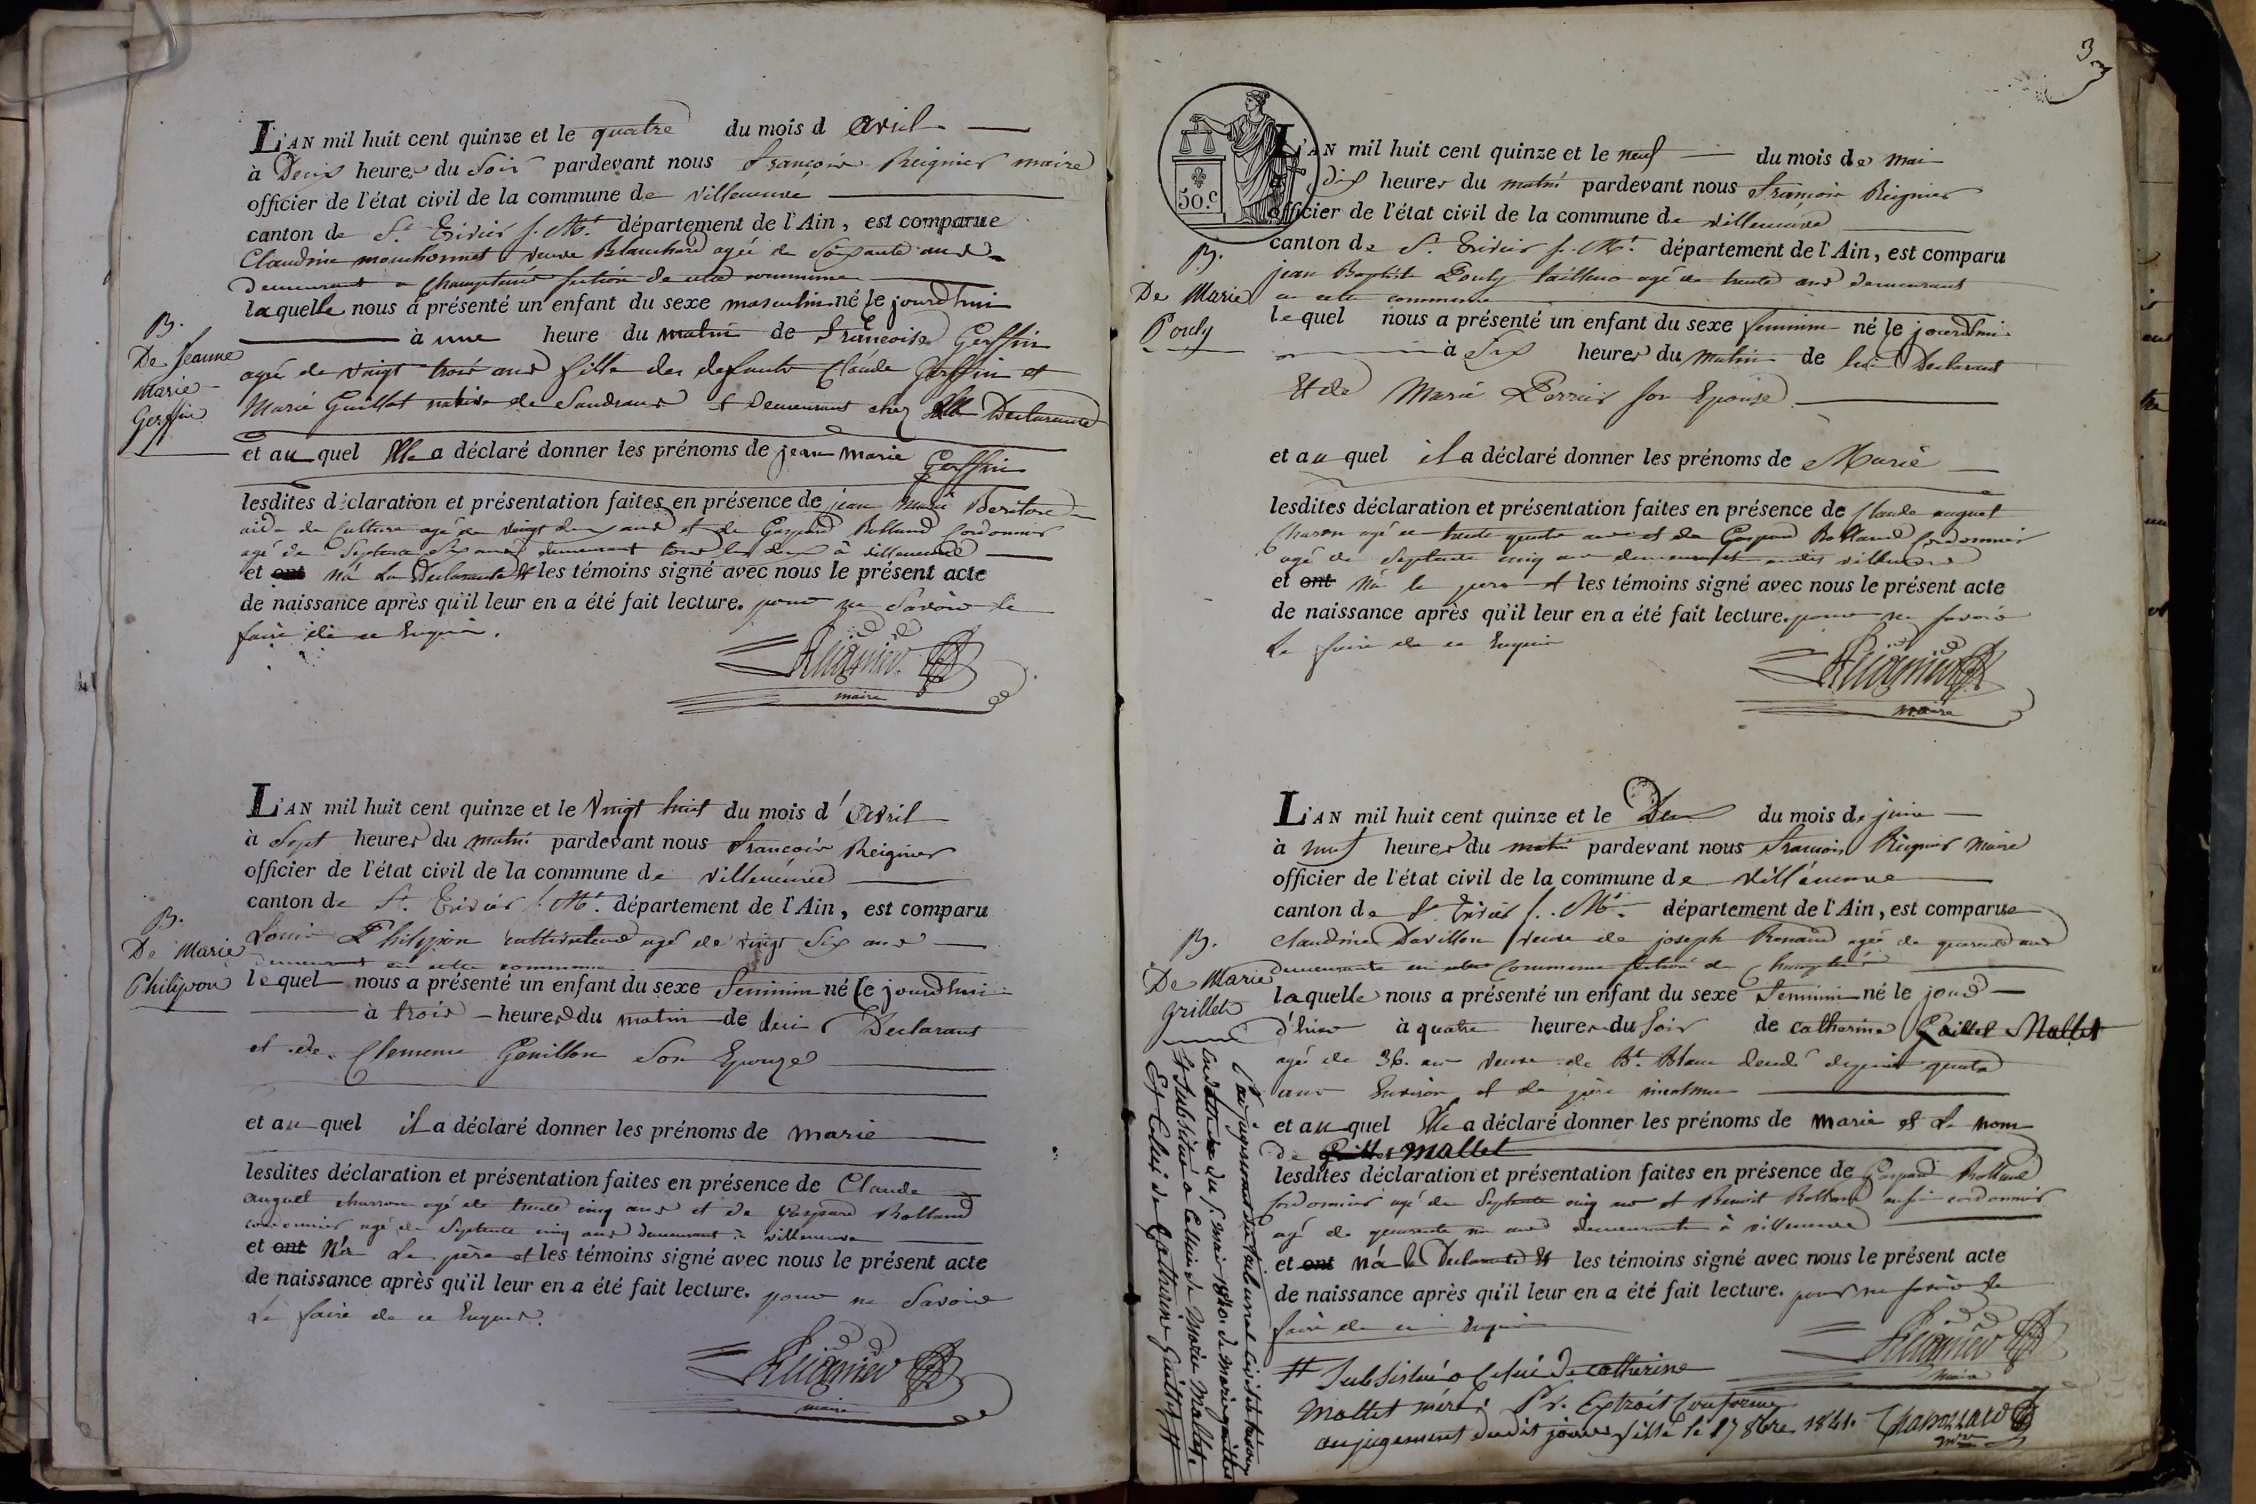 L'AN mil huit cent quinze et le quatre du mois d avril
à Deux heures du Soir pardevant nous François Reignier maire
officier de l'état civil de la commune de villeneuve
canton de St. Trivier s. Mt. département de l'Ain, est comparue
Claudine veuve Blanchard agée de Soixante ans
demeurant a Champteins section de cette commune
laquelle nous a présenté un enfant du sexe masculin né le jourd'hui
à une heure du matin de Françoise Gerffin
agée de vingt trois ans fille des defunts Claude Gerffin et
Marie Guillot native de Sandrans et Demeurant chez la Declarante
et au quel Elle a déclaré donner les prénoms de jean marie Gerffin
B.
De Jeanne
Marie
Gerffin
lesdites déclaration et présentation faites en présence de jean Marie
aide de culture agé de vingt deux ans et de Gaspard Rolland Cordonnier
agé de Septente Six ans demeurant tous les deux à villeneuve
et ont n'a La Declarante et les témoins signé avec nous le présent acte
de naissance après qu'il leur en a été fait lecture. pour ne Savoir le
faire de ce Enquis.
Reignier
maire
L'AN mil huit cent quinze et le Vingt huit du mois d' avril
à Sept heures du matin pardevant nous François Reignier
officier de l'état civil de la commune de villeneuve
canton de St. Trivier s. Mt. département de l'Ain, est comparu
Louis Philipon cultivateur agé de vingt Six ans
demeurant en cette commune
B.
De Marie
Philipon
lequel nous a présenté un enfant du sexe Feminin né le jourd'hui
à trois heures du matin de lui Declarant
et de Clemence Genillon Son Epouze
et au quel il a déclaré donner les prénoms de marie
lesdites déclaration et présentation faites en présence de Claude
auguet charron agé de trente cinq ans et de Gaspard Rolland
cordonnier agé de Septente cinq ans demeurant à villeneuve
et ont N'a Le père et les témoins signé avec nous le présent acte
de naissance après qu'il leur en a été fait lecture. pour ne Savoir
Le faire de ce Enquis.
Reignier
maire
3
50.c
L'AN mil huit cent quinze et le neuf du mois de mai
à dix heures du matin pardevant nous François Reignier
officier de l'état civil de la commune de villeneuve
canton de St. Trivier s. Mt. département de l'Ain, est comparu
jean Baptiste Pouly tailleur agé de trente ans demeurant
en cette commune
B.
De Marie
Pouly
lequel nous a présenté un enfant du sexe feminin né le jourd'hui
à Six heures du matin de lui Declarant
Et de Marie Perrier son Epouse
et au quel il a déclaré donner les prénoms de Marie
lesdites déclaration et présentation faites en présence de Claude auguet
Charon agé de trente quatre ans et de Gaspard Rolland Cordonnier
agé de Septente cinq ans demeurant audit villeneuve
et ont N'a le pere et les témoins signé avec nous le présent acte
de naissance après qu'il leur en a été fait lecture. pour ne savoir
Le faire de ce Enquis
Reignier
maire
L'AN mil huit cent quinze et le Deux du mois de juin
à neuf heures du matin pardevant nous François Reignier Maire
officier de l'état civil de la commune de villeneuve
canton de St. Trivier s. Mt. département de l'Ain, est comparue
claudine Davillon veuve de joseph Renaud agée de quarente ans
demeurante en cette Commune section de Champteins
B.
De Marie
Grillet
laquelle nous a présenté un enfant du sexe Feminin né le jour
d'hier à quatre heures du Soir de catherine Mallet
agée de 36. ans veuve de Bt. Blanc décédé depuis quatre
ans Environ et de père inconnu
et au quel Elle a déclaré donner les prénoms de marie et Le nom
de Mallet
lesdites déclaration et présentation faites en présence de Gaspard Rolland
Cordonnier agé de Septente cinq ans et Benoit Rolland aussi cordonnier
agé de quarente un ans demeurant à villeneuve
et ont N'a la Declarante Et les témoins signé avec nous le présent acte
de naissance après qu'il leur en a été fait lecture. pour ne savoir le
faire de ce Enquis
Reignier
Maire
Par jugement du tribunal Civil de trévoux
du mai 1840.
Substitué a Celui de Marie Mallet
Et Celui de Catherine #
# Substitué a Celui de catherine
Mallet mère. Pr. Extrait Conforme
au jugement dudit jour le 17 8bre 1841.